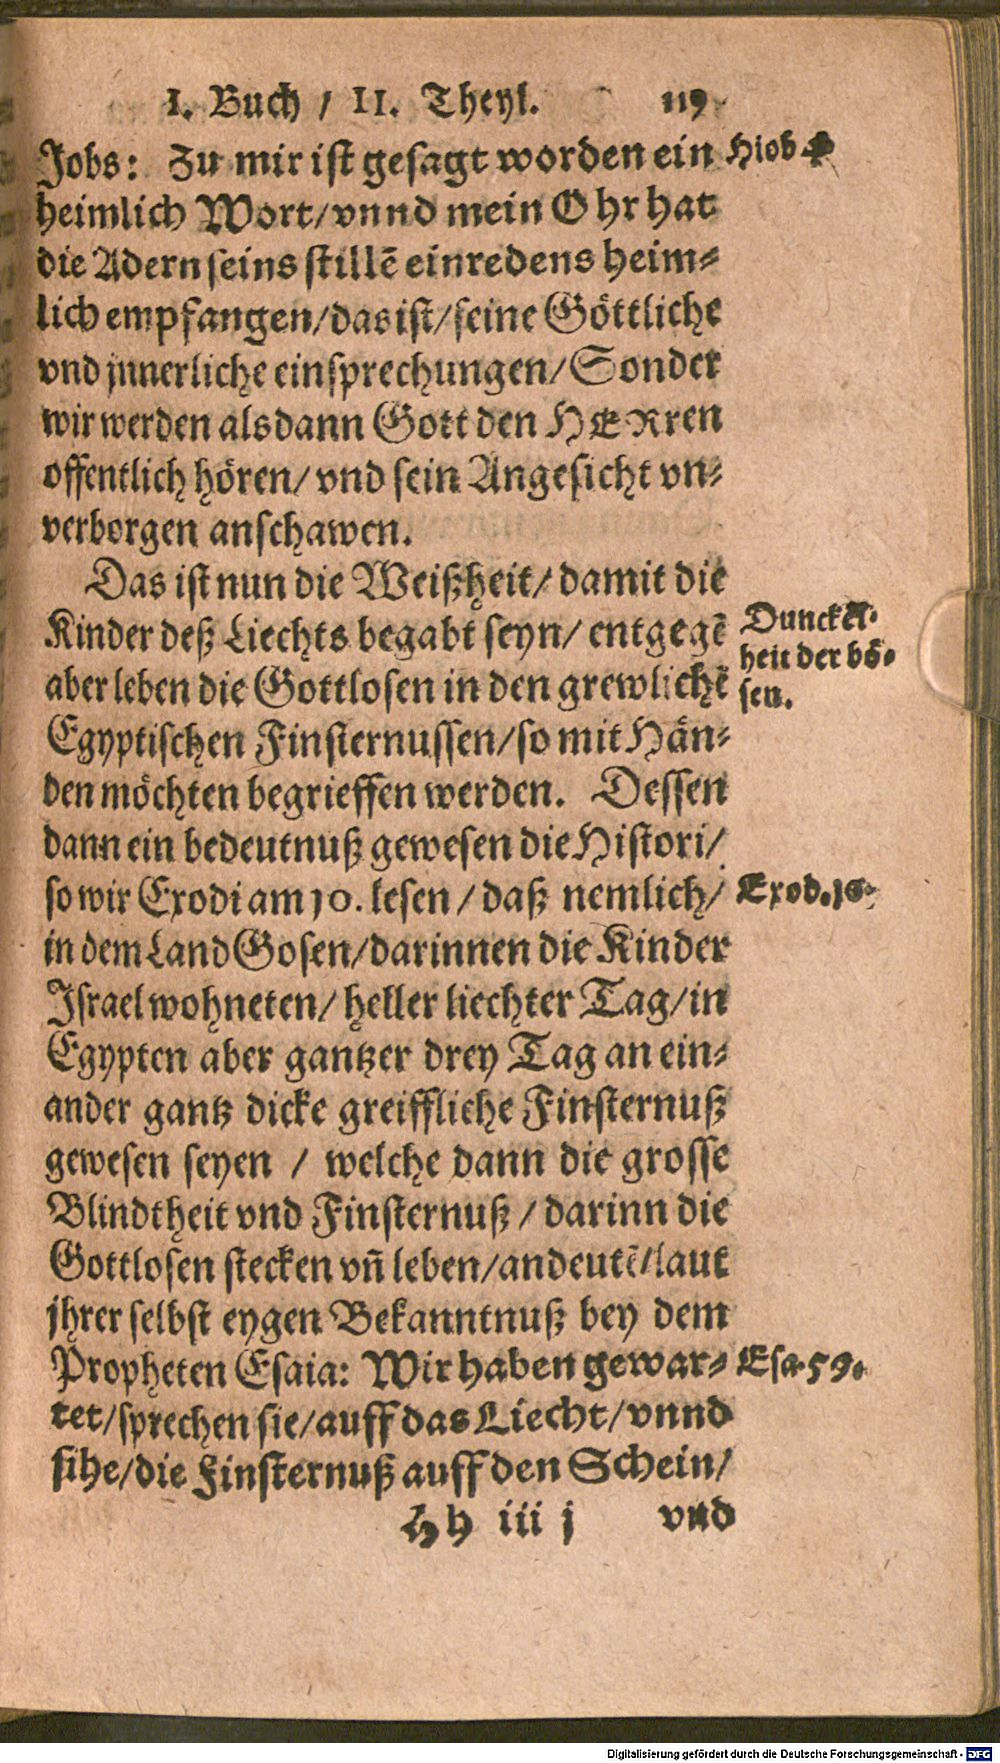 I. Buch / II. Theyl. 119
Jobs: Zu mir ist gesagt worden ein
Hiob 4
heimlich Wort/vnnd mein Ohr hat
die Adern seins stillē einredens heim-
lich empfangen/das ist/seine Göttliche
vnd jnnerliche einsprechungen/Sonder
wir werden alsdann Gott den HERren
offentlich hören/vnd sein Angesicht vn-
verborgen anschawen.
Das ist nun die Weißheit/damit die
Kinder deß Liechts begabt seyn/entgegē
aber leben die Gottlosen in den grewlichē
Dunckel-
heit der bö-
sen.
Egyptischen Finsternussen/so mit Hän-
den möchten begrieffen werden. Dessen
dann ein bedeutnuß gewesen die Histori/
so wir Exodi am 10. lesen/daß nemlich/
Exod. 10.
in dem Land Gosen/darinnen die Kinder
Israel wohneten/heller liechter Tag/in
Egypten aber gantzer drey Tag an ein-
ander gantz dicke greiffliche Finsternuß
gewesen seyen / welche dann die grosse
Blindtheit vnd Finsternuß/darinn die
Gottlosen stecken vñ leben/andeutē/laut
jhrer selbst eygen Bekanntnuß bey dem
Propheten Esaia: Wir haben gewar-
Esa. 59.
tet/sprechen sie/auff das Liecht/vnnd
sihe/die Finsternuß auff den Schein/
Hh iiij vnd
Digitalisierung gefördert durch die Deutsche Forschungsgemeinschaft - DFG